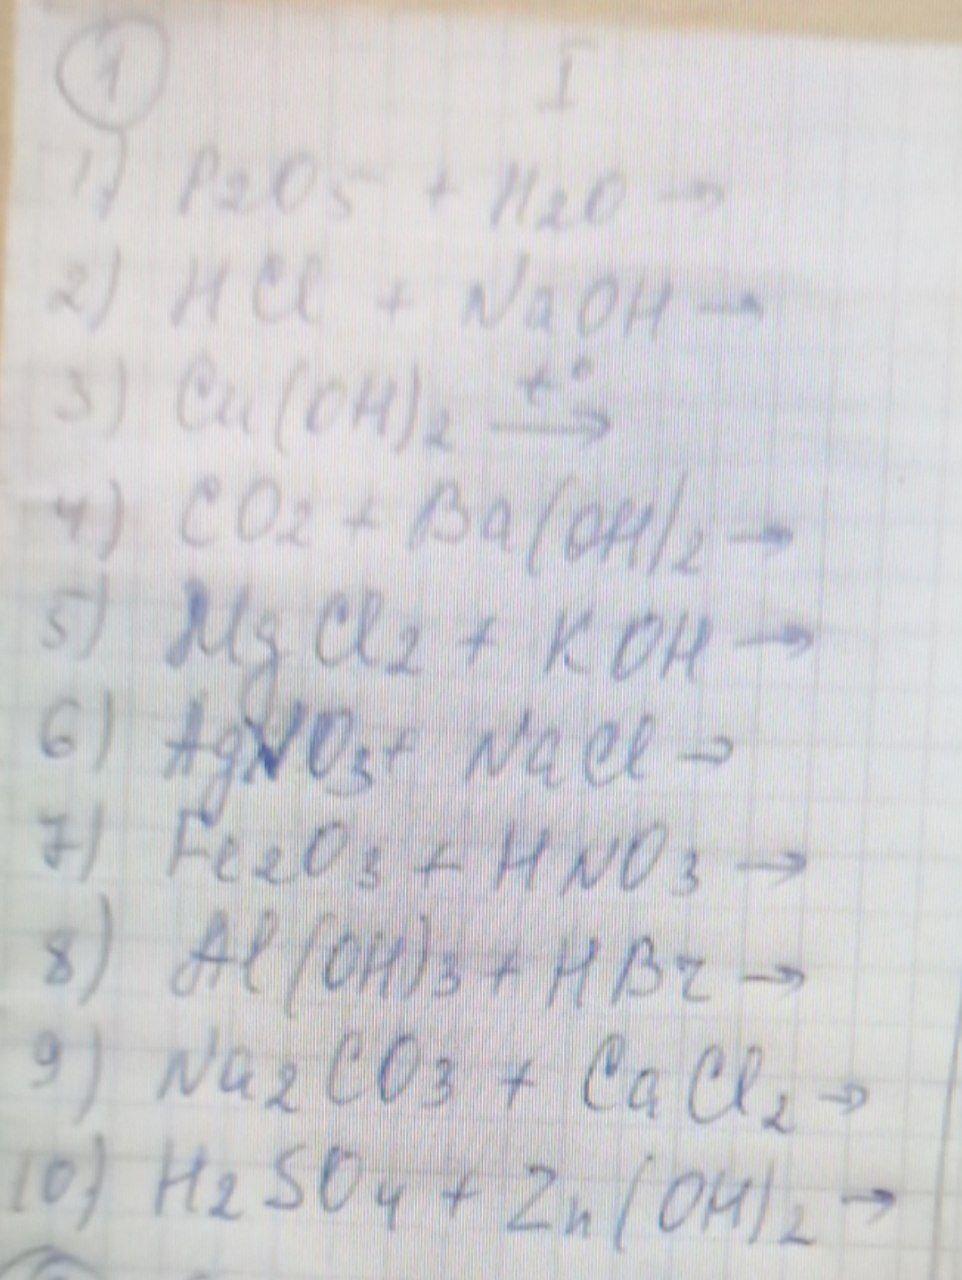 1 I
1) P2O5 + H2O →
2) HCl + NaOH →
3) Cu(OH)2 t° →
4) CO2 + Ba(OH)2 →
5) MgCl2 + KOH →
6) AgNO3 + NaCl →
7) Fe2O3 + HNO3 →
8) Al(OH)3 + HBr →
9) Na2CO3 + CaCl2 →
10) H2SO4 + Zn(OH)2 →